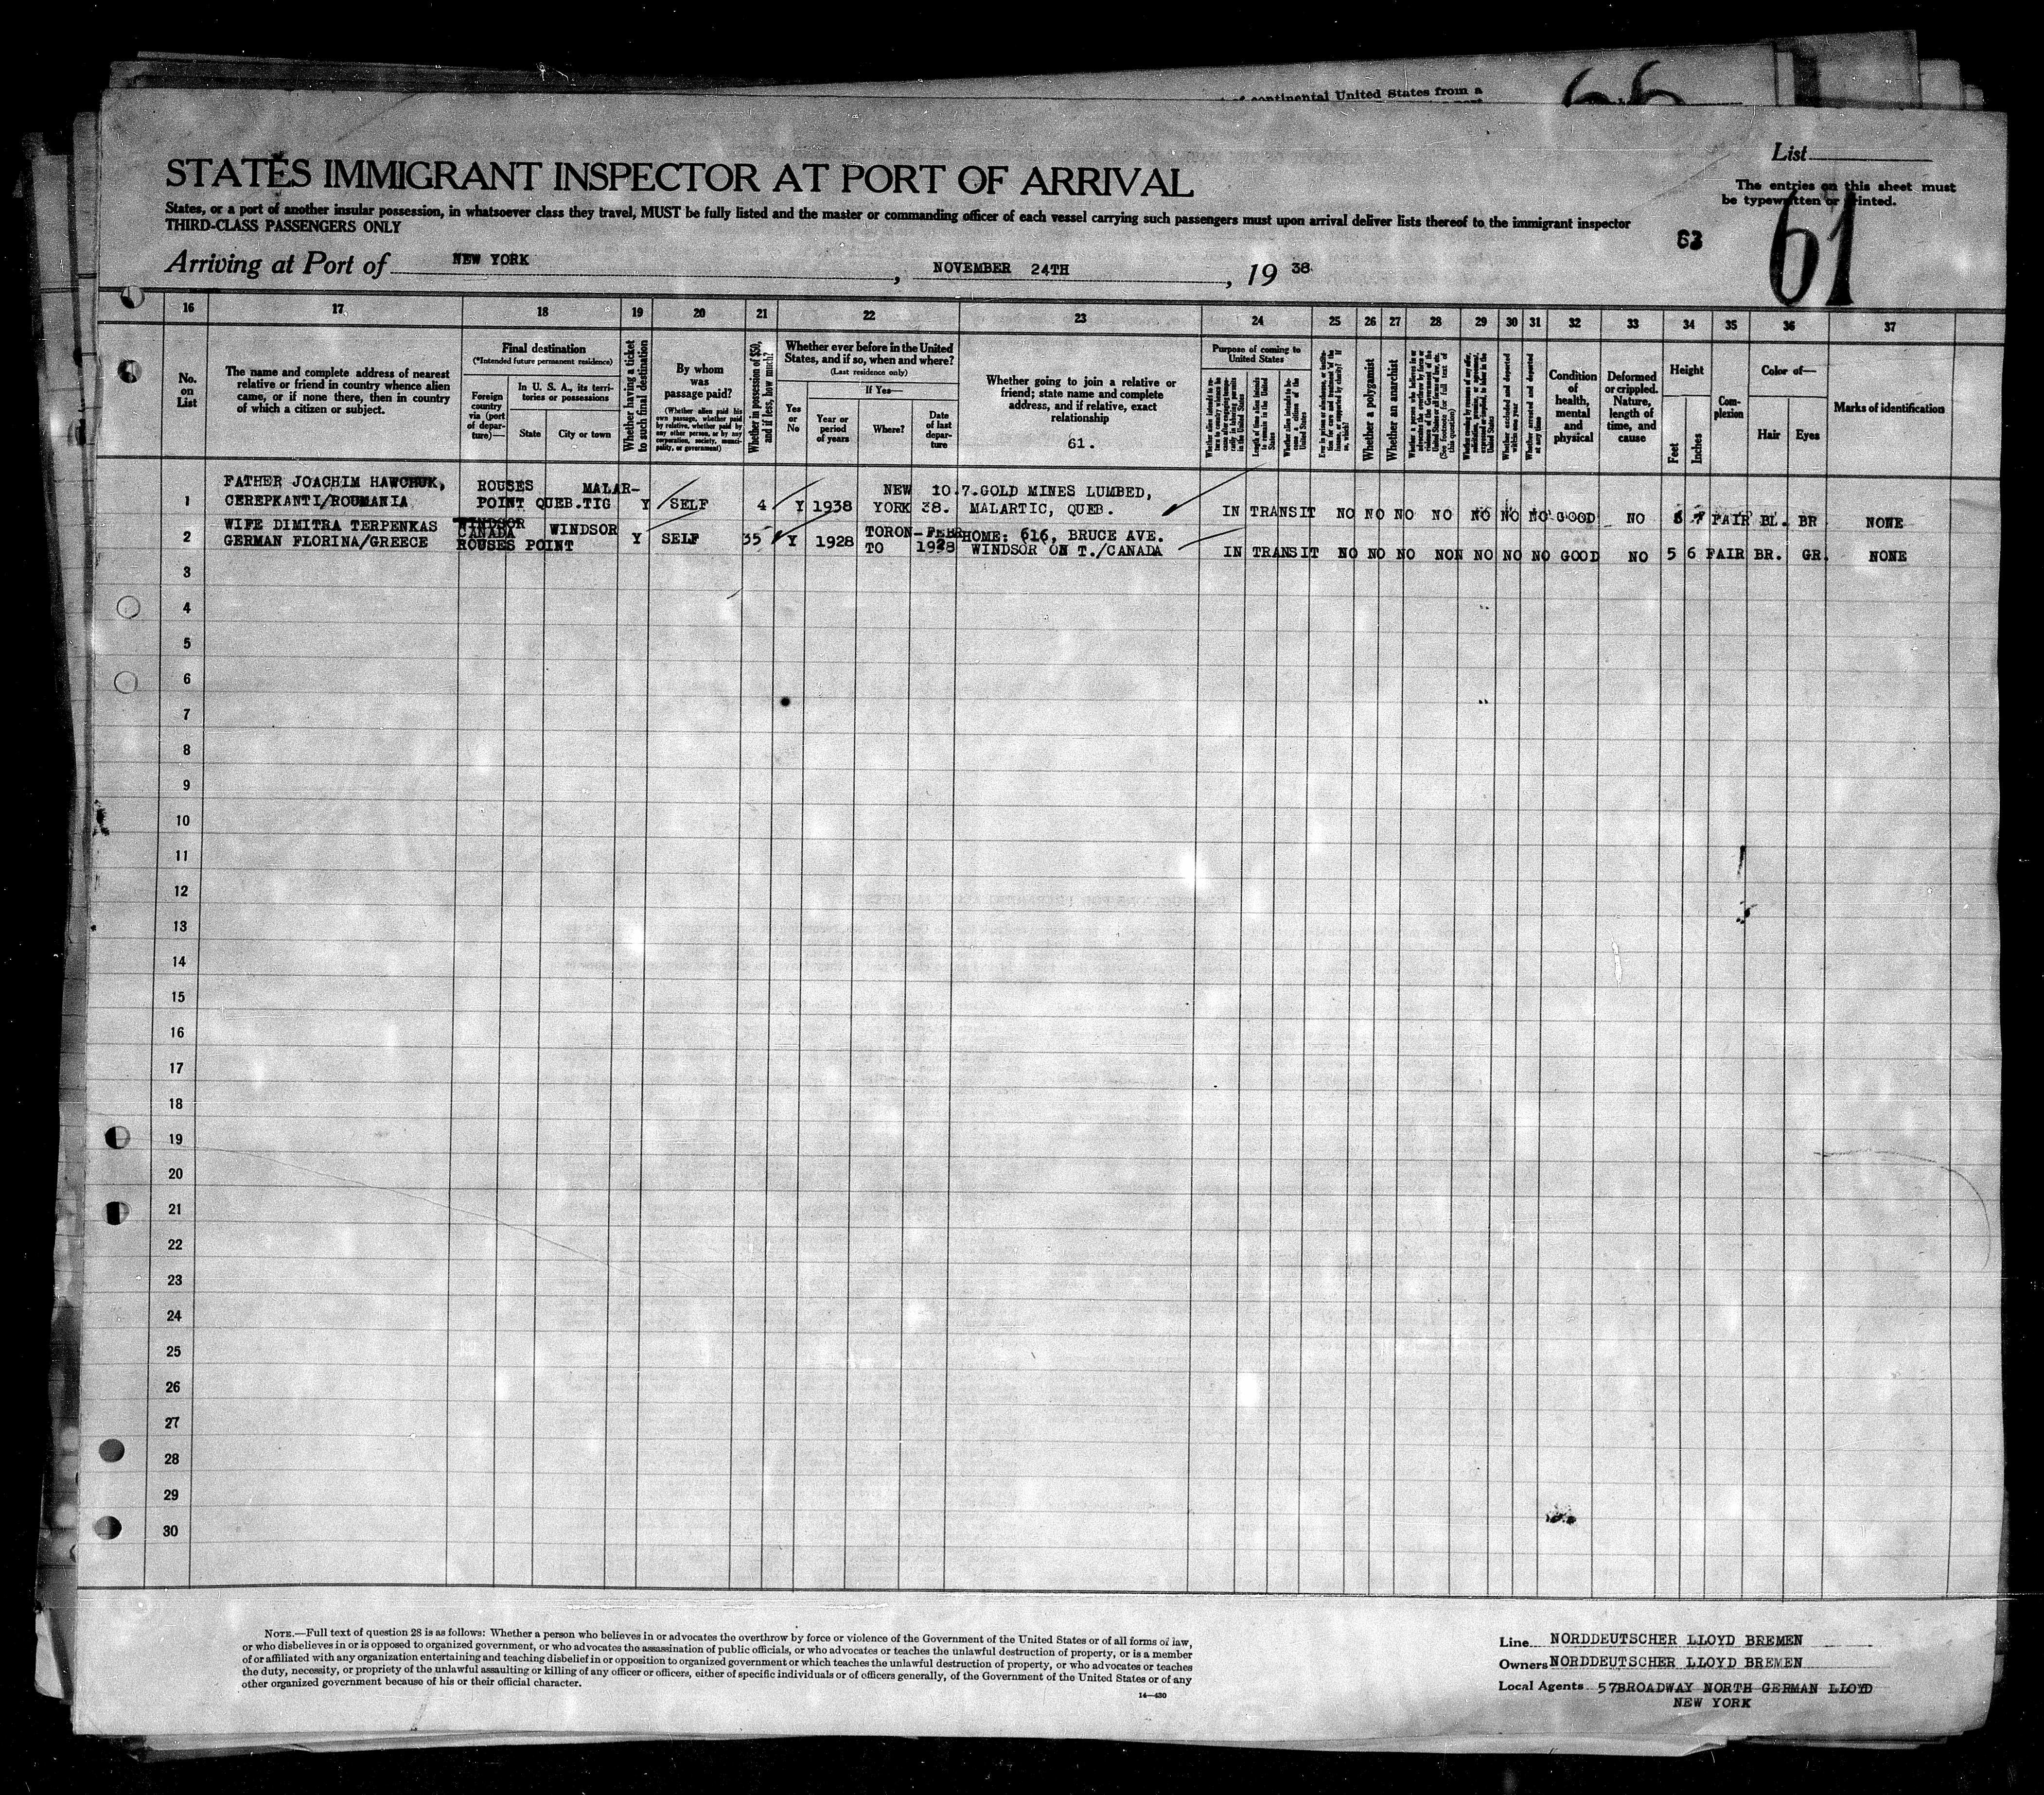 of continental United States from a
66
STATES IMMIGRANT INSPECTOR AT PORT OF ARRIVAL
List
The entries on this sheet must
be typewritten or printed.
States, or a port of another insular possession, in whatsoever class they travel, MUST be fully listed and the master or commanding officer of each vessel carrying such passengers must upon arrival deliver lists thereof to the immigrant inspector
THIRD-CLASS PASSENGERS ONLY
63
61
Arriving at Port of NEW YORK, NOVEMBER 24TH, 19 38
16 17 18 19 20 21 22 23 24 25 26 27 28 29 30 31 32 33 34 35 36 37
No. on List
The name and complete address of nearest
relative or friend in country whence alien
came, or if none there, then in country
of which a citizen or subject.
Final destination
(*Intended future permanent residence)
Foreign country via (port of departure)—
In U. S. A., its territories or possessions
State
City or town
Whether having a ticket to such final destination
By whom was passage paid?
(Whether alien paid his own passage, whether paid by relative, whether paid by any other person, or by any corporation, society, municipality, or government)
Whether in possession of $50, and if less, how much?
Whether ever before in the United
States, and if so, when and where?
(Last residence only)
Yes or No
If Yes—
Year or period of years
Where?
Date of last departure
Whether going to join a relative or
friend; state name and complete
address, and if relative, exact
relationship
61.
Purpose of coming to United States
Length of time alien intends to remain in the United States
Whether alien intends to become a citizen of the United States
Whether a polygamist
Whether an anarchist
Whether excluded and deported within one year
Whether arrested and deported at any time
Condition of health, mental and physical
Deformed or crippled. Nature, length of time, and cause
Height
Feet
Inches
Complexion
Color of—
Hair
Eyes
Marks of identification
1 FATHER JOACHIM HAWCHUK, ROUSES MALAR- NEW 10.7. GOLD MINES LUMBED,
CEREPKANTI/ROUMANIA POINT QUEB. TIG Y SELF 4 Y 1938 YORK 38. MALARTIC, QUEB. IN TRANSIT NO NO NO NO NO NO NO GOOD NO 5 7 FAIR BL. BR NONE
2 WIFE DIMITRA TERPENKAS WINDSOR CANADA WINDSOR Y SELF 35 Y 1928 TORON- FEBR HOME: 616, BRUCE AVE.
GERMAN FLORINA/GREECE ROUSES POINT TO 1928 WINDSOR ON T./CANADA IN TRANSIT NO NO NO NON NO NO NO GOOD NO 5 6 FAIR BR. GR. NONE
3
4
5
6
7
8
9
10
11
12
13
14
15
16
17
18
19
20
21
22
23
24
25
26
27
28
29
30
NOTE.—Full text of question 28 is as follows: Whether a person who believes in or advocates the overthrow by force or violence of the Government of the United States or of all forms of law,
or who disbelieves in or is opposed to organized government, or who advocates the assassination of public officials, or who advocates or teaches the unlawful destruction of property, or is a member
of or affiliated with any organization entertaining and teaching disbelief in or opposition to organized government or which teaches the unlawful destruction of property, or who advocates or teaches
the duty, necessity, or propriety of the unlawful assaulting or killing of any officer or officers, either of specific individuals or of officers generally, of the Government of the United States or of any
other organized government because of his or their official character.
14—430
Line NORDDEUTSCHER LLOYD BREMEN
Owners NORDDEUTSCHER LLOYD BREMEN
Local Agents 57BROADWAY NORTH GERMAN LLOYD
NEW YORK